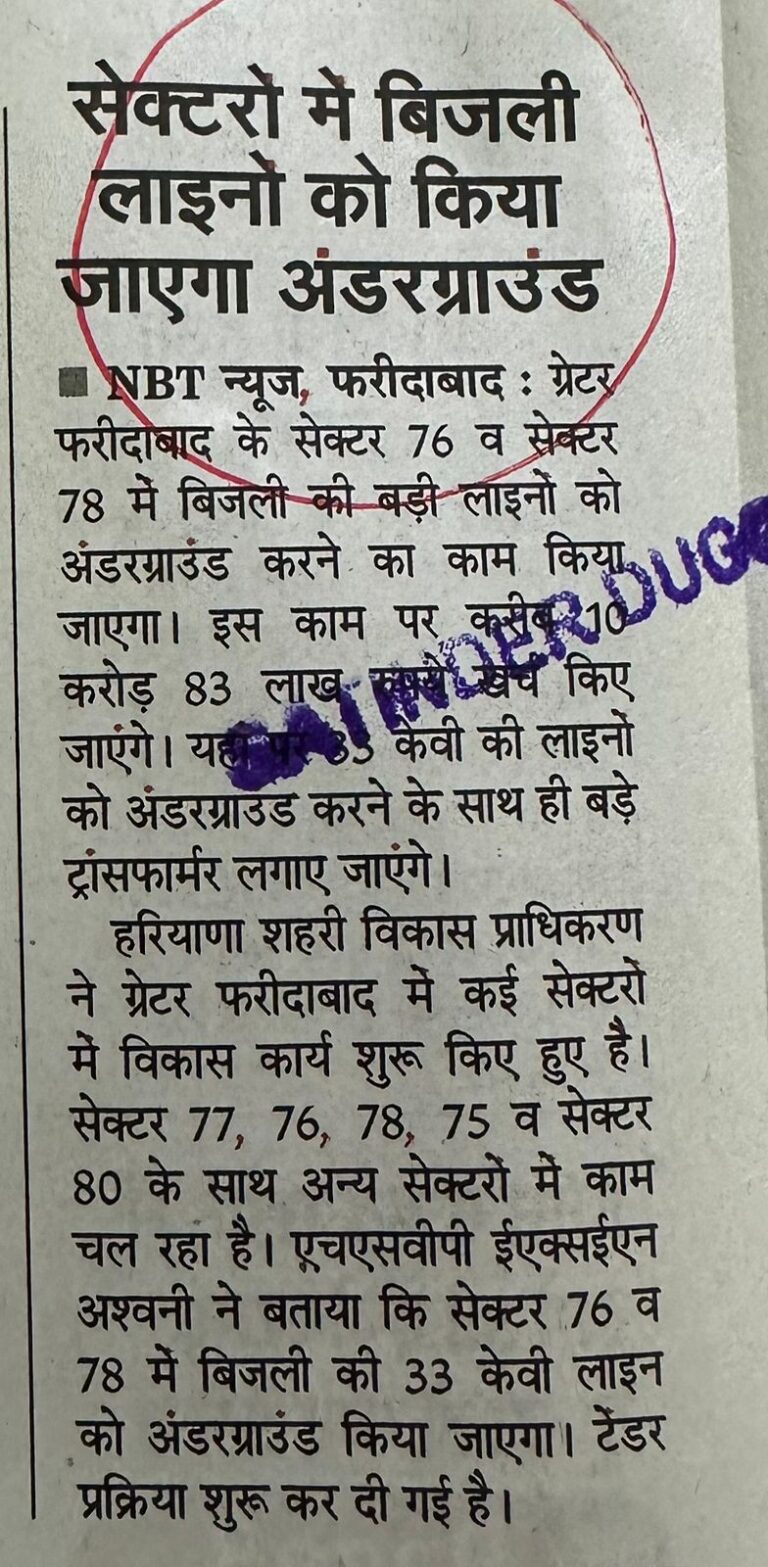 सेक्टरों में बिजली
लाइनों को किया
जाएगा अंडरग्राउंड
■ NBT न्यूज, फरीदाबाद : ग्रेटर
फरीदाबाद के सेक्टर 76 व सेक्टर
78 में बिजली की बड़ी लाइनों को
अंडरग्राउंड करने का काम किया
जाएगा। इस काम पर करीब 10
करोड़ 83 लाख रुपये खर्च किए
जाएंगे। यहां पर 33 केवी की लाइनों
को अंडरग्राउड करने के साथ ही बड़े
ट्रांसफार्मर लगाए जाएंगे।
हरियाणा शहरी विकास प्राधिकरण
ने ग्रेटर फरीदाबाद में कई सेक्टरों
में विकास कार्य शुरू किए हुए है।
सेक्टर 77, 76, 78, 75 व सेक्टर
80 के साथ अन्य सेक्टरों में काम
चल रहा है। एचएसवीपी ईएक्सईएन
अश्वनी ने बताया कि सेक्टर 76 व
78 में बिजली की 33 केवी लाइन
को अंडरग्राउंड किया जाएगा। टेंडर
प्रक्रिया शुरू कर दी गई है।